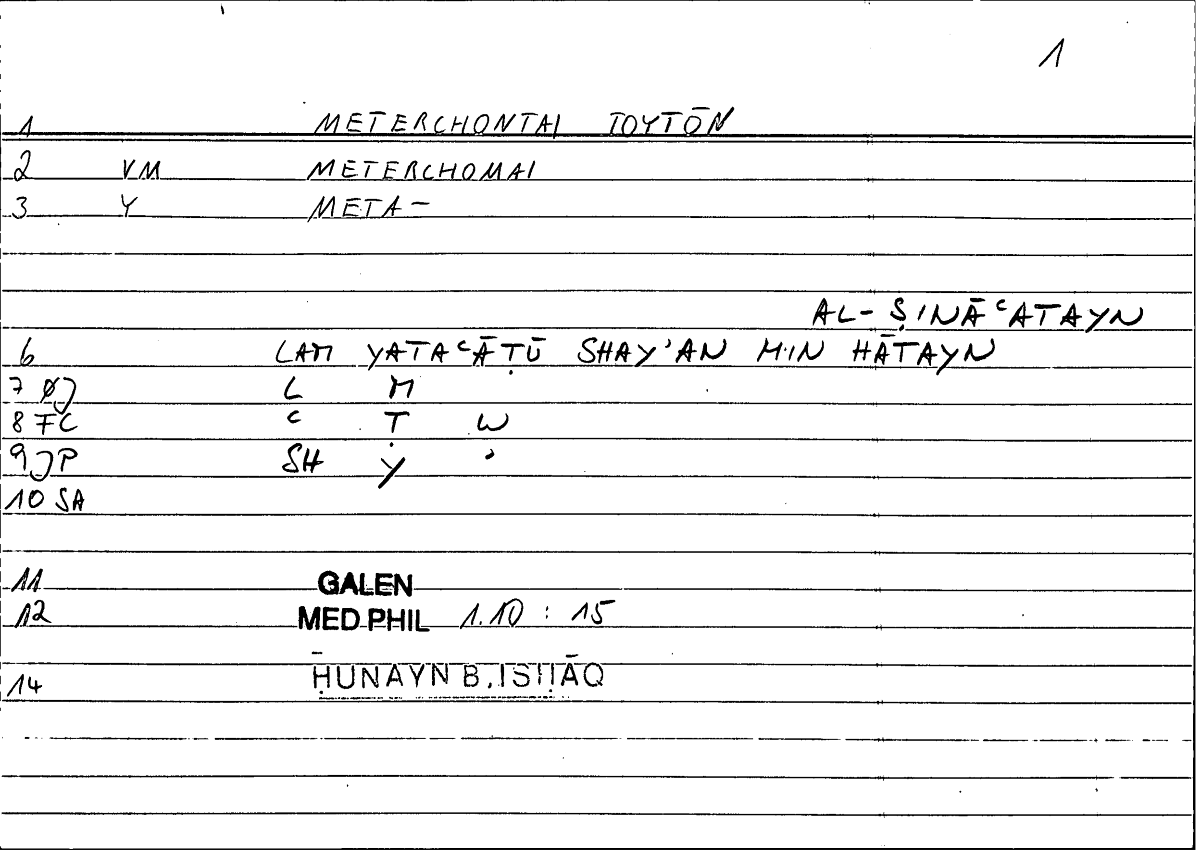 1
1 METERCHONTAI TOYTŌN
2 VM METERCHOMAI
3 Y META-
AL-ṢINĀᶜATAYN
6 LAM YATAᶜĀṬŪ SHAY'AN MIN HĀTAYN
7 ØJ L M
8 FC ᶜ T W
9 JP SH Y '
10 SA
11 GALEN
12 MED PHIL 1.10 : 15
14 ḤUNAYN B. ISḤĀQ